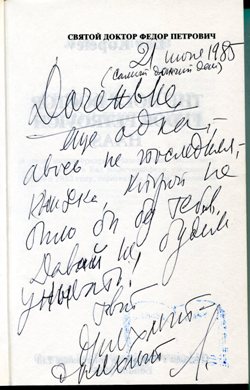 СВЯТОЙ ДОКТОР ФЕДОР ПЕТРОВИЧ
21 июня 1985
(самый длинный день)
Доченьке
еще одна,
авось не последняя,
книжка, которой не
было бы без тебя.
Давай не будем
унывать!
Твой